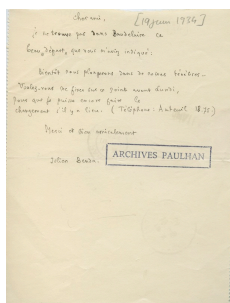 Cher ami, [19 juin 1934]
je ne trouve que dans Baudelaire ca
beau départ, que vous m'avez indiqué.
Bientôt vous plongerez dans de
Voulez-vous me fixer sur ce point avant lundi,
pour que je puisse encore faire le
changement s'il y a lieu. (Téléphone: Auteuil
Merci et bien amicalement
Julien Benda.
ARCHIVES PAULHAN